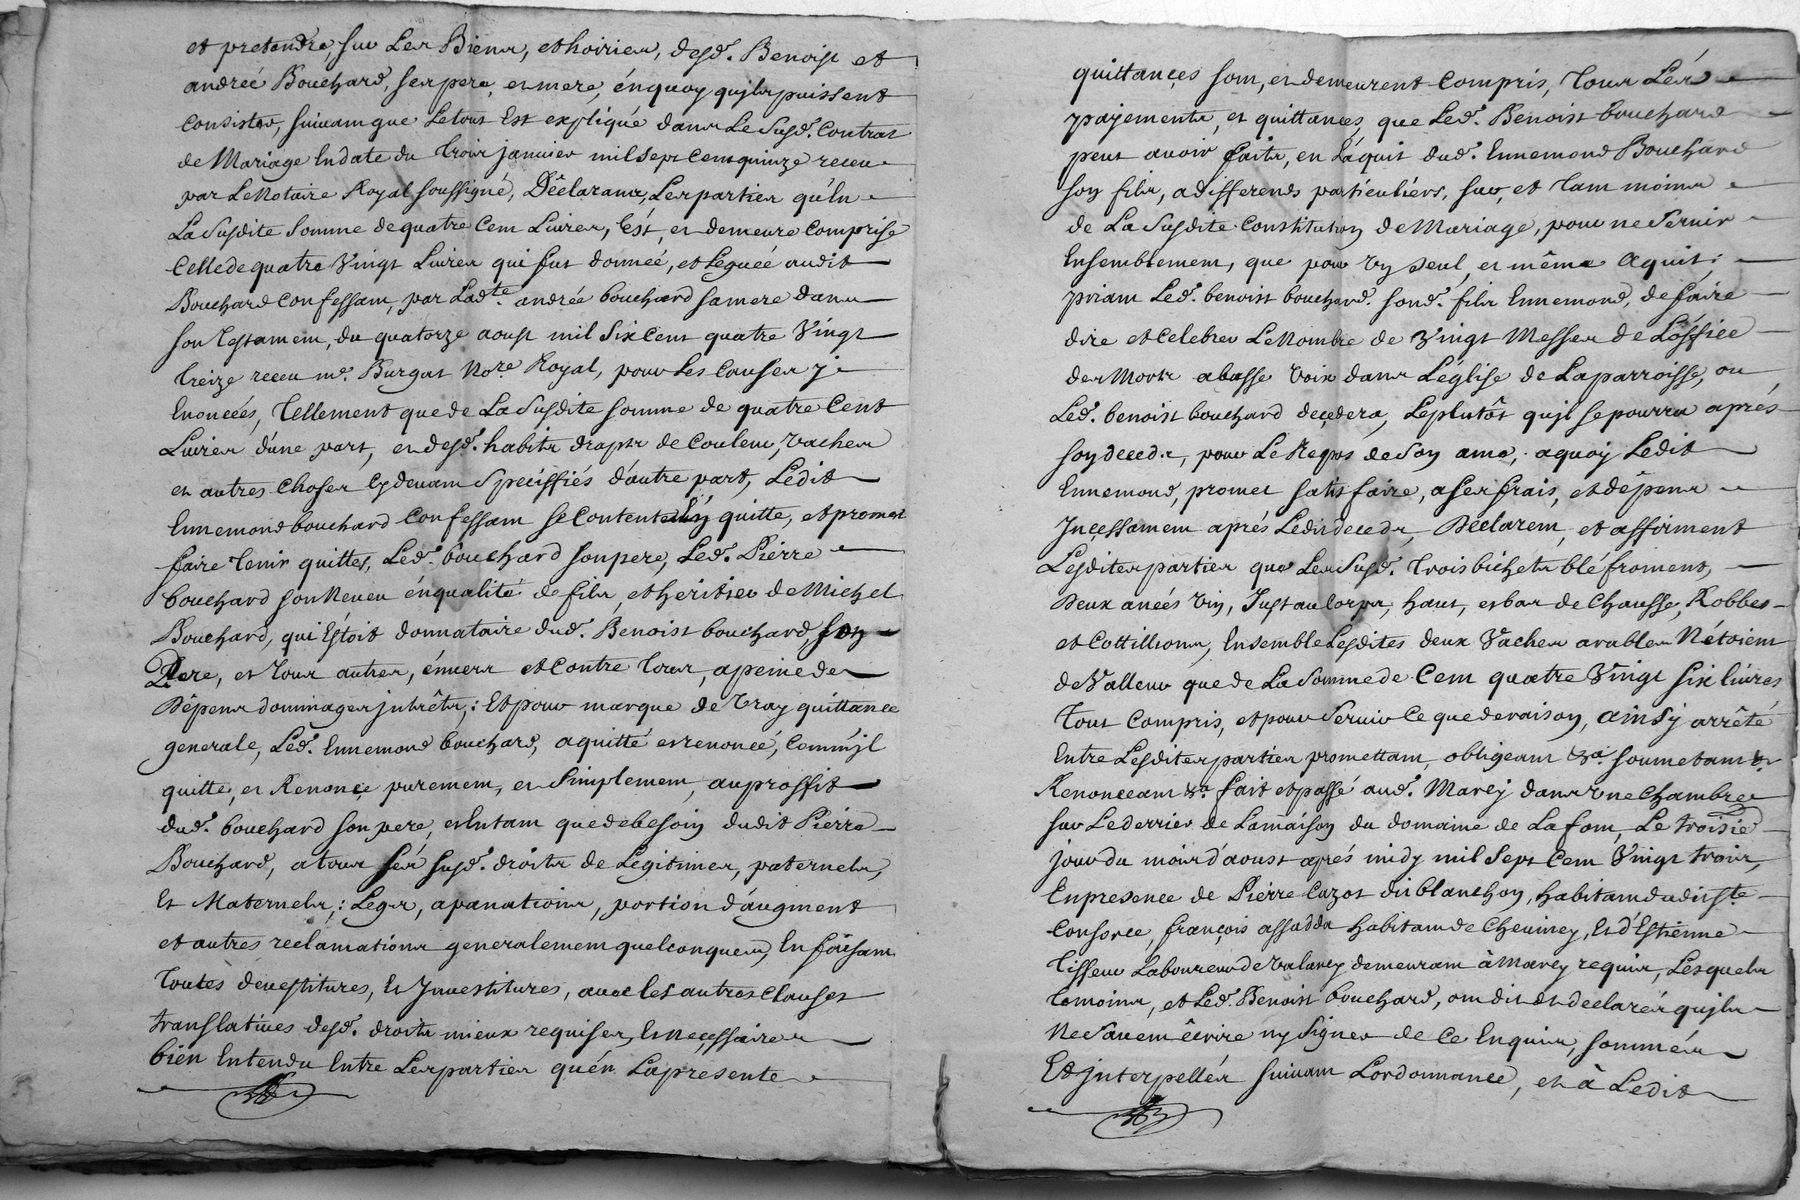 et pretendre sur Les Biens, et hoiries, desd. Benoist et
andreé Bouchard, ses pere, et mere, énquoy qu'ils puissent
Consister, suivam que Letout Est expliqué dans Le Susd. Contrat
de Mariage En date du trois janvier mil sept Cent quinze receu
par Le Notaire Royal soussigné, Déclarans, Les parties qu'En
La Susdite Somme de quatre Cent Livres, Est, et demeure comprise
Celle de quatre Vingt Livres qui fut donneé, et Legueé audit
Bouchard Confessam, par Ladte. andrée bouchard sa mere dans
son Testamem, du quatorze aoust mil Six Cent quatre Vingt
treize receu me. Burgat Nore. Royal, pour Les Causes j
Enonceés, Tellement que de La Susdite somme de quatre Cent
Livres d'une part, et desd. habits draps de Couleur, Vaches
et autres Choses Cy devam Speciffiés d'autre part, Ledit
Ennemond bouchard Confessam se Contente En quitte, et promet
faire tenir quittes, Led. bouchard son pere, Led. Pierre
bouchard son Neveu énqualité de fils, et heritier de Michel
Bouchard, qui Estoit donnataire dud. Benoist bouchard, son
Pere, et tous autres, énvers et Contre tous, a peine de
Dépens dommages jntrêts; Et pour marque de Vray quittance
generale, Led. Ennemond bouchard, a quitté et renoncé, Comm'jl
quitte, et Renonçe purement, et Simplement, au proffit
dud. bouchard son pere, et En tam que de besoin dudit Pierre
Bouchard, a tous Ses susd. droits de Legitimes, paternels,
Et Maternels; Legs, apanations, portion d'augment
et autres reclamations generalemem quelconques, En faisam
Toutes devestitures, Et Jnvestitures, avec les autres Clauses
translatives desd. droits mieux requises, Et neçessaires
bien Entendu Entre Les parties qu'én La presente
quittançes som, et demeurent Compris, Tous Lés
payements, et quittances, que Led. Benoist bouchard
peut avoir faits, en L'aquit dud. Ennemond Bouchard
son fils, a differends particuliers, sur, et tam moins
de La Susdite Constitution de Mariage, pour ne Servir
Ensemblement, que pour Un Seul, et même aquit;
priam Led. benoist bouchard sond. fils Ennemond, de faire
dire et Celebrer Le Nombre de Vingt Messes de L'offiçe
des Morts a basse Voix dans L'église de La parroisse, ou
Led. benoist bouchard deçedera, Le plutôt qu'jl se pourra aprés
son deceds, pour Le Repos de Son ame, a quoy Ledit
Ennemond, promet satisfaire, a ses frais, et dépens
Jnçessamem aprés Ledit deceds, Déclarem, et affirment
Lesdites parties que Les Susd. trois bichets blé froment,
Deux aneés Vin, Just au Corps, haut, et bas de Chausse, Robbes
et Cottillions, Ensemble Lesdites deux Vaches arables N'étoiem
de Valleur que de La Somme de Cent quatre Vingt six livres
tout Compris, et pour Servir Ce que de raison, ainsy arrêté
Entre Lesdites parties promettam, obligeant &a. soumetant &
Renonceant &a. fait et passé aud. Marcy dans Une Chambre
sur Le derrier de La maison du domaine de La fom, Le troisie
jour du mois d'aoust aprés midy mil Sept Cent Vingt trois,
En presence de Pierre Cazot dit blanchon, habitam dudit Ste.
Consorce, françois assadda habitam de Chevinay, Et d'Estienne
Tisseur Laboureur de Valancy demeuram à Marcy requis, Lesquels
témoins, et Led. Benoist bouchard, om dit et declaré qu'jls
Ne Savem écrire ny Signer de Ce Enquis, sommés
Et jnterpellés suivam L'ordonnance, et à Ledit